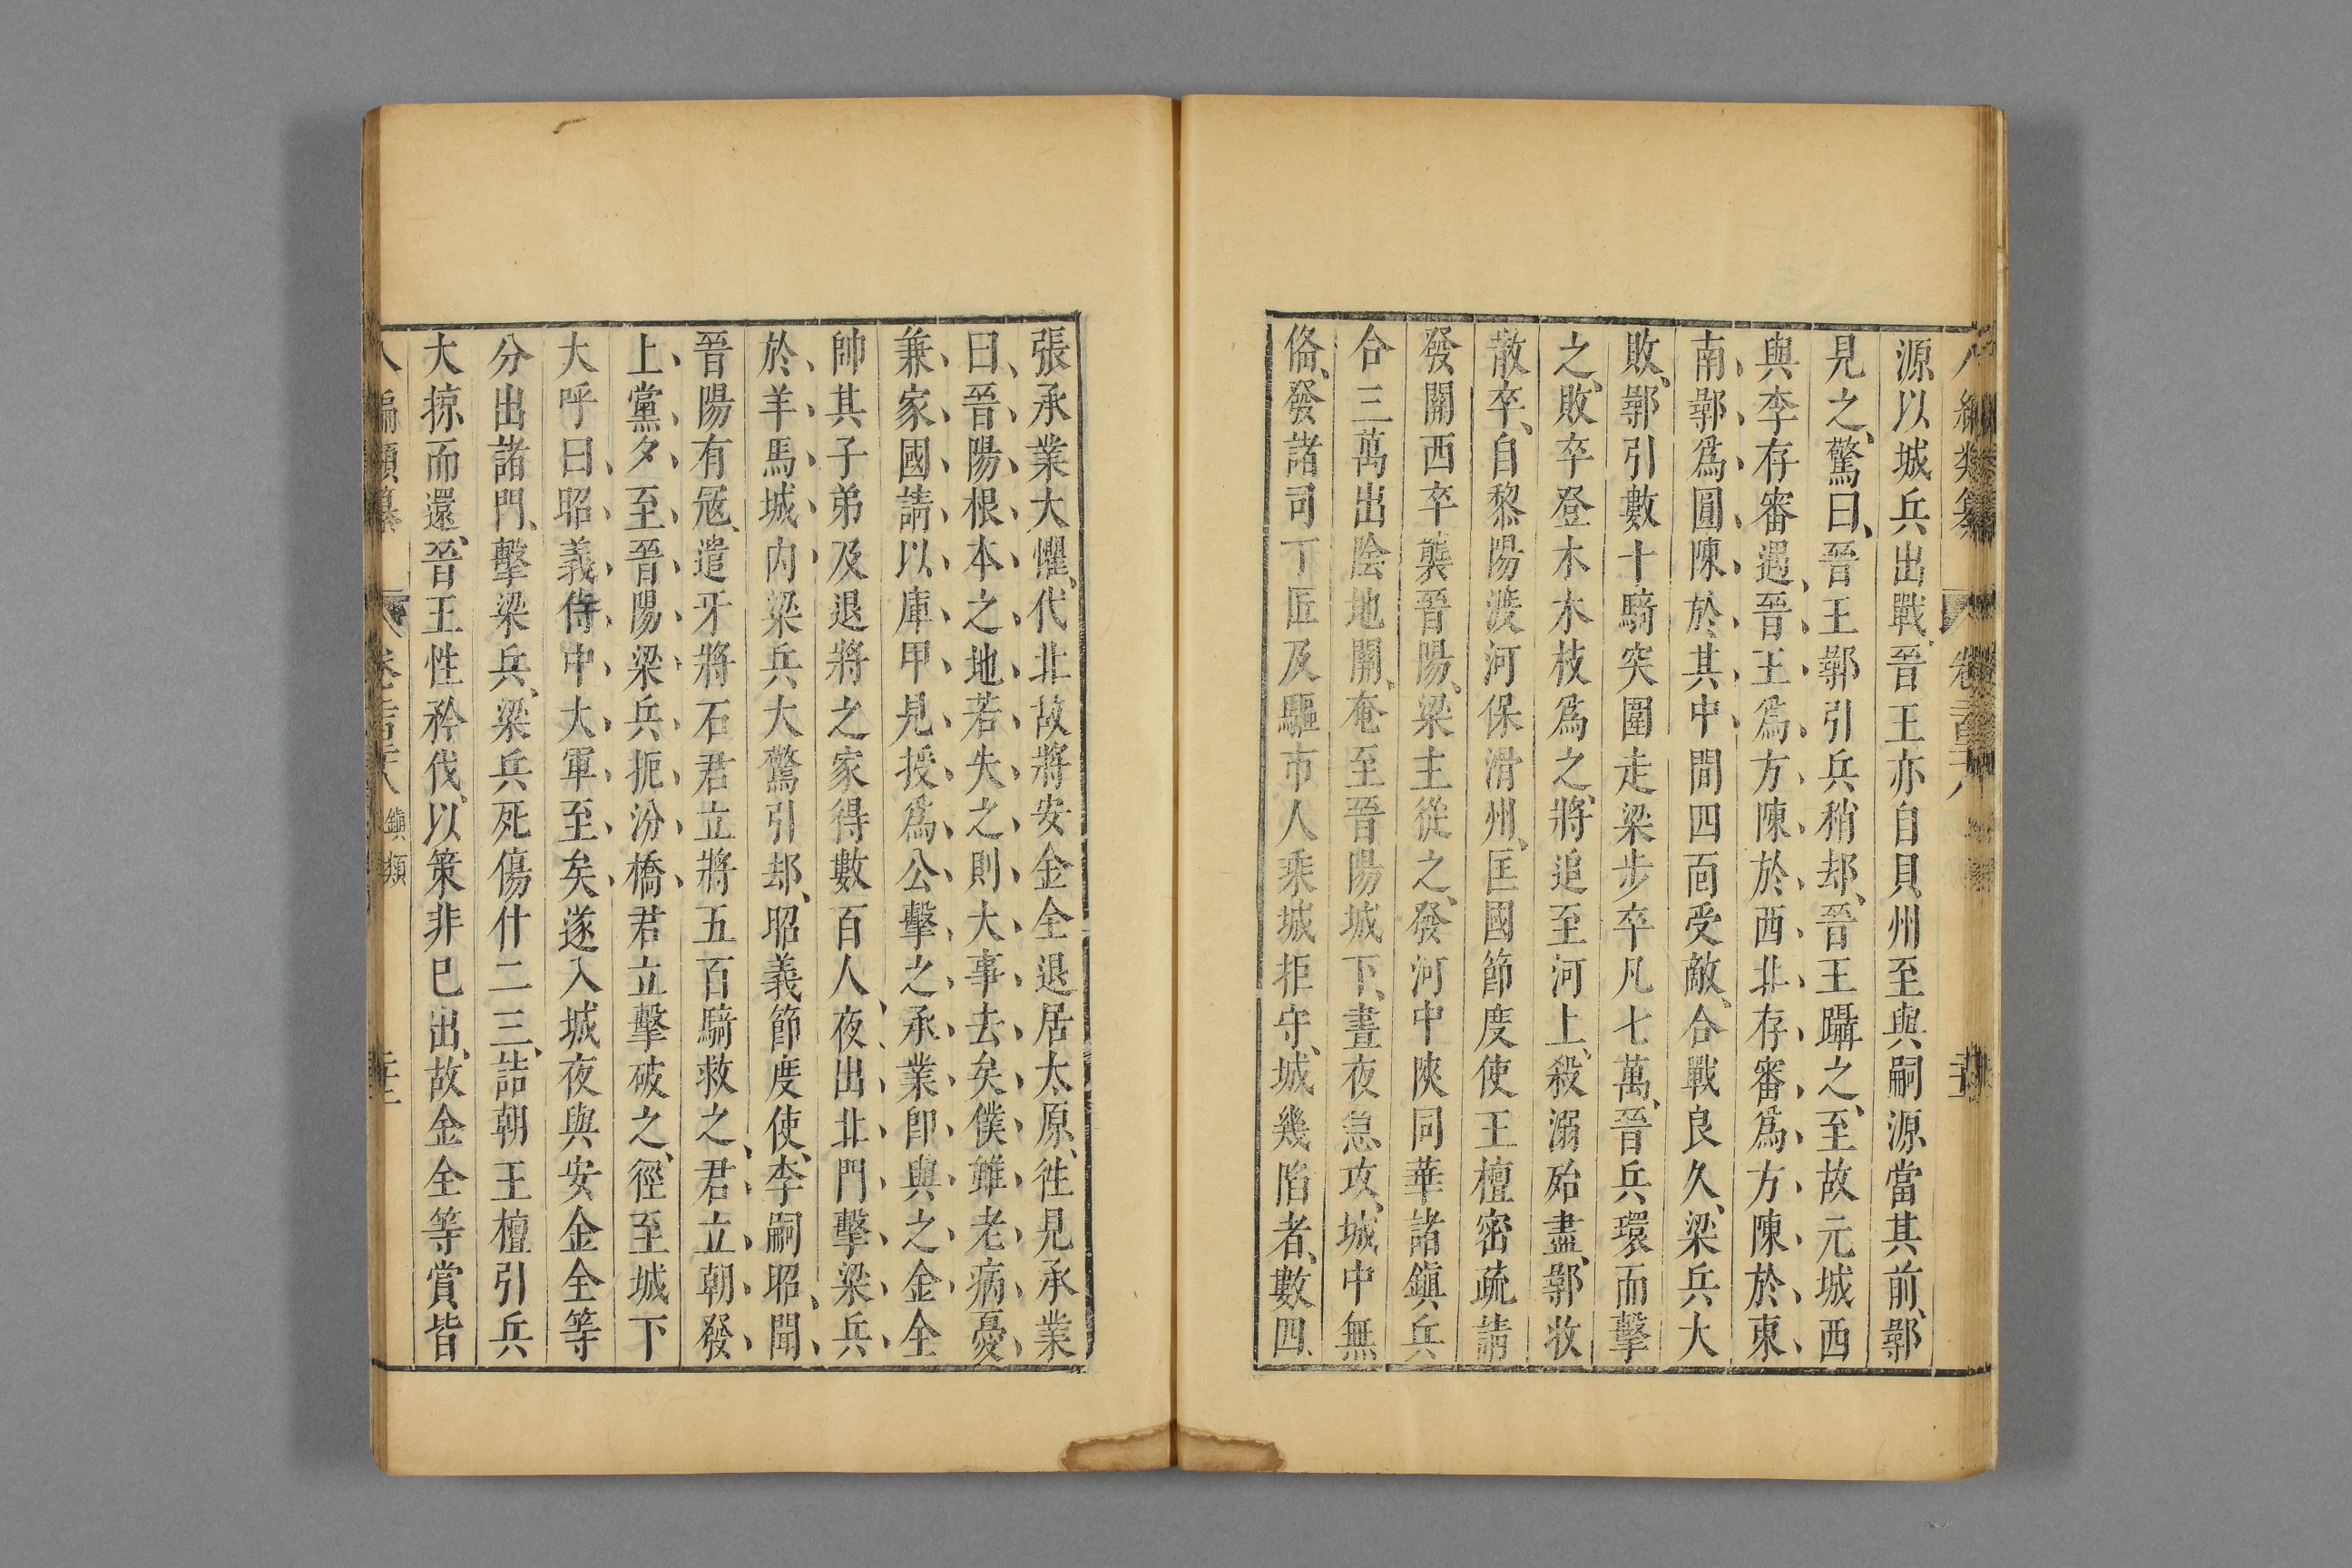 源以城兵出戰、晉王亦自貝州至與嗣源當其前、鄩
見之、驚曰、晉王鄩引兵稍却、晉王躡之、至故元城西
與李存審遇、晉王爲方陳於西北、存審爲方陳於東
南、鄩爲圓陳、於其中間四面受敵、合戰良久、梁兵大
敗、鄩引數十騎突圍走梁步卒凡七萬、晉兵環而擊
之、敗卒登木木枝爲之、將追至河上、殺溺殆盡、鄩收
散卒、自黎陽渡河保滑州、匡國節度使王檀密疏請
發關西卒襲晉陽、梁主從之、發河中陝同華諸鎭兵
合三萬出陰地關、奄至晉陽城下、晝夜急攻、城中無
俻、發諸司丁匠及驅市人乘城拒守、城幾陷者、數四、
張承業大懼、代北故將安金全退居太原、徃見承業
曰、晉陽根本之地若失之則大事去矣僕雖老病憂
兼家國請以庫甲見授爲公擊之承業卽與之金全
帥其子弟及退將之家得數百人夜出北門擊梁兵
於羊馬城內梁兵大驚引却、昭義節度使、李嗣昭、聞
晉陽有寇、遣牙將石君立將五百騎救之、君立朝發
上黨夕至晉陽梁兵扼汾橋君立擊破之、徑至城下
大呼曰昭義侍中大軍至矣遂入城夜與安金全等
分出諸門、擊梁兵、梁兵死傷什二三、詰朝王檀引兵
大掠而還、晉王性矜伐、以策非已出、故金全等賞皆
八編類纂 鎭類